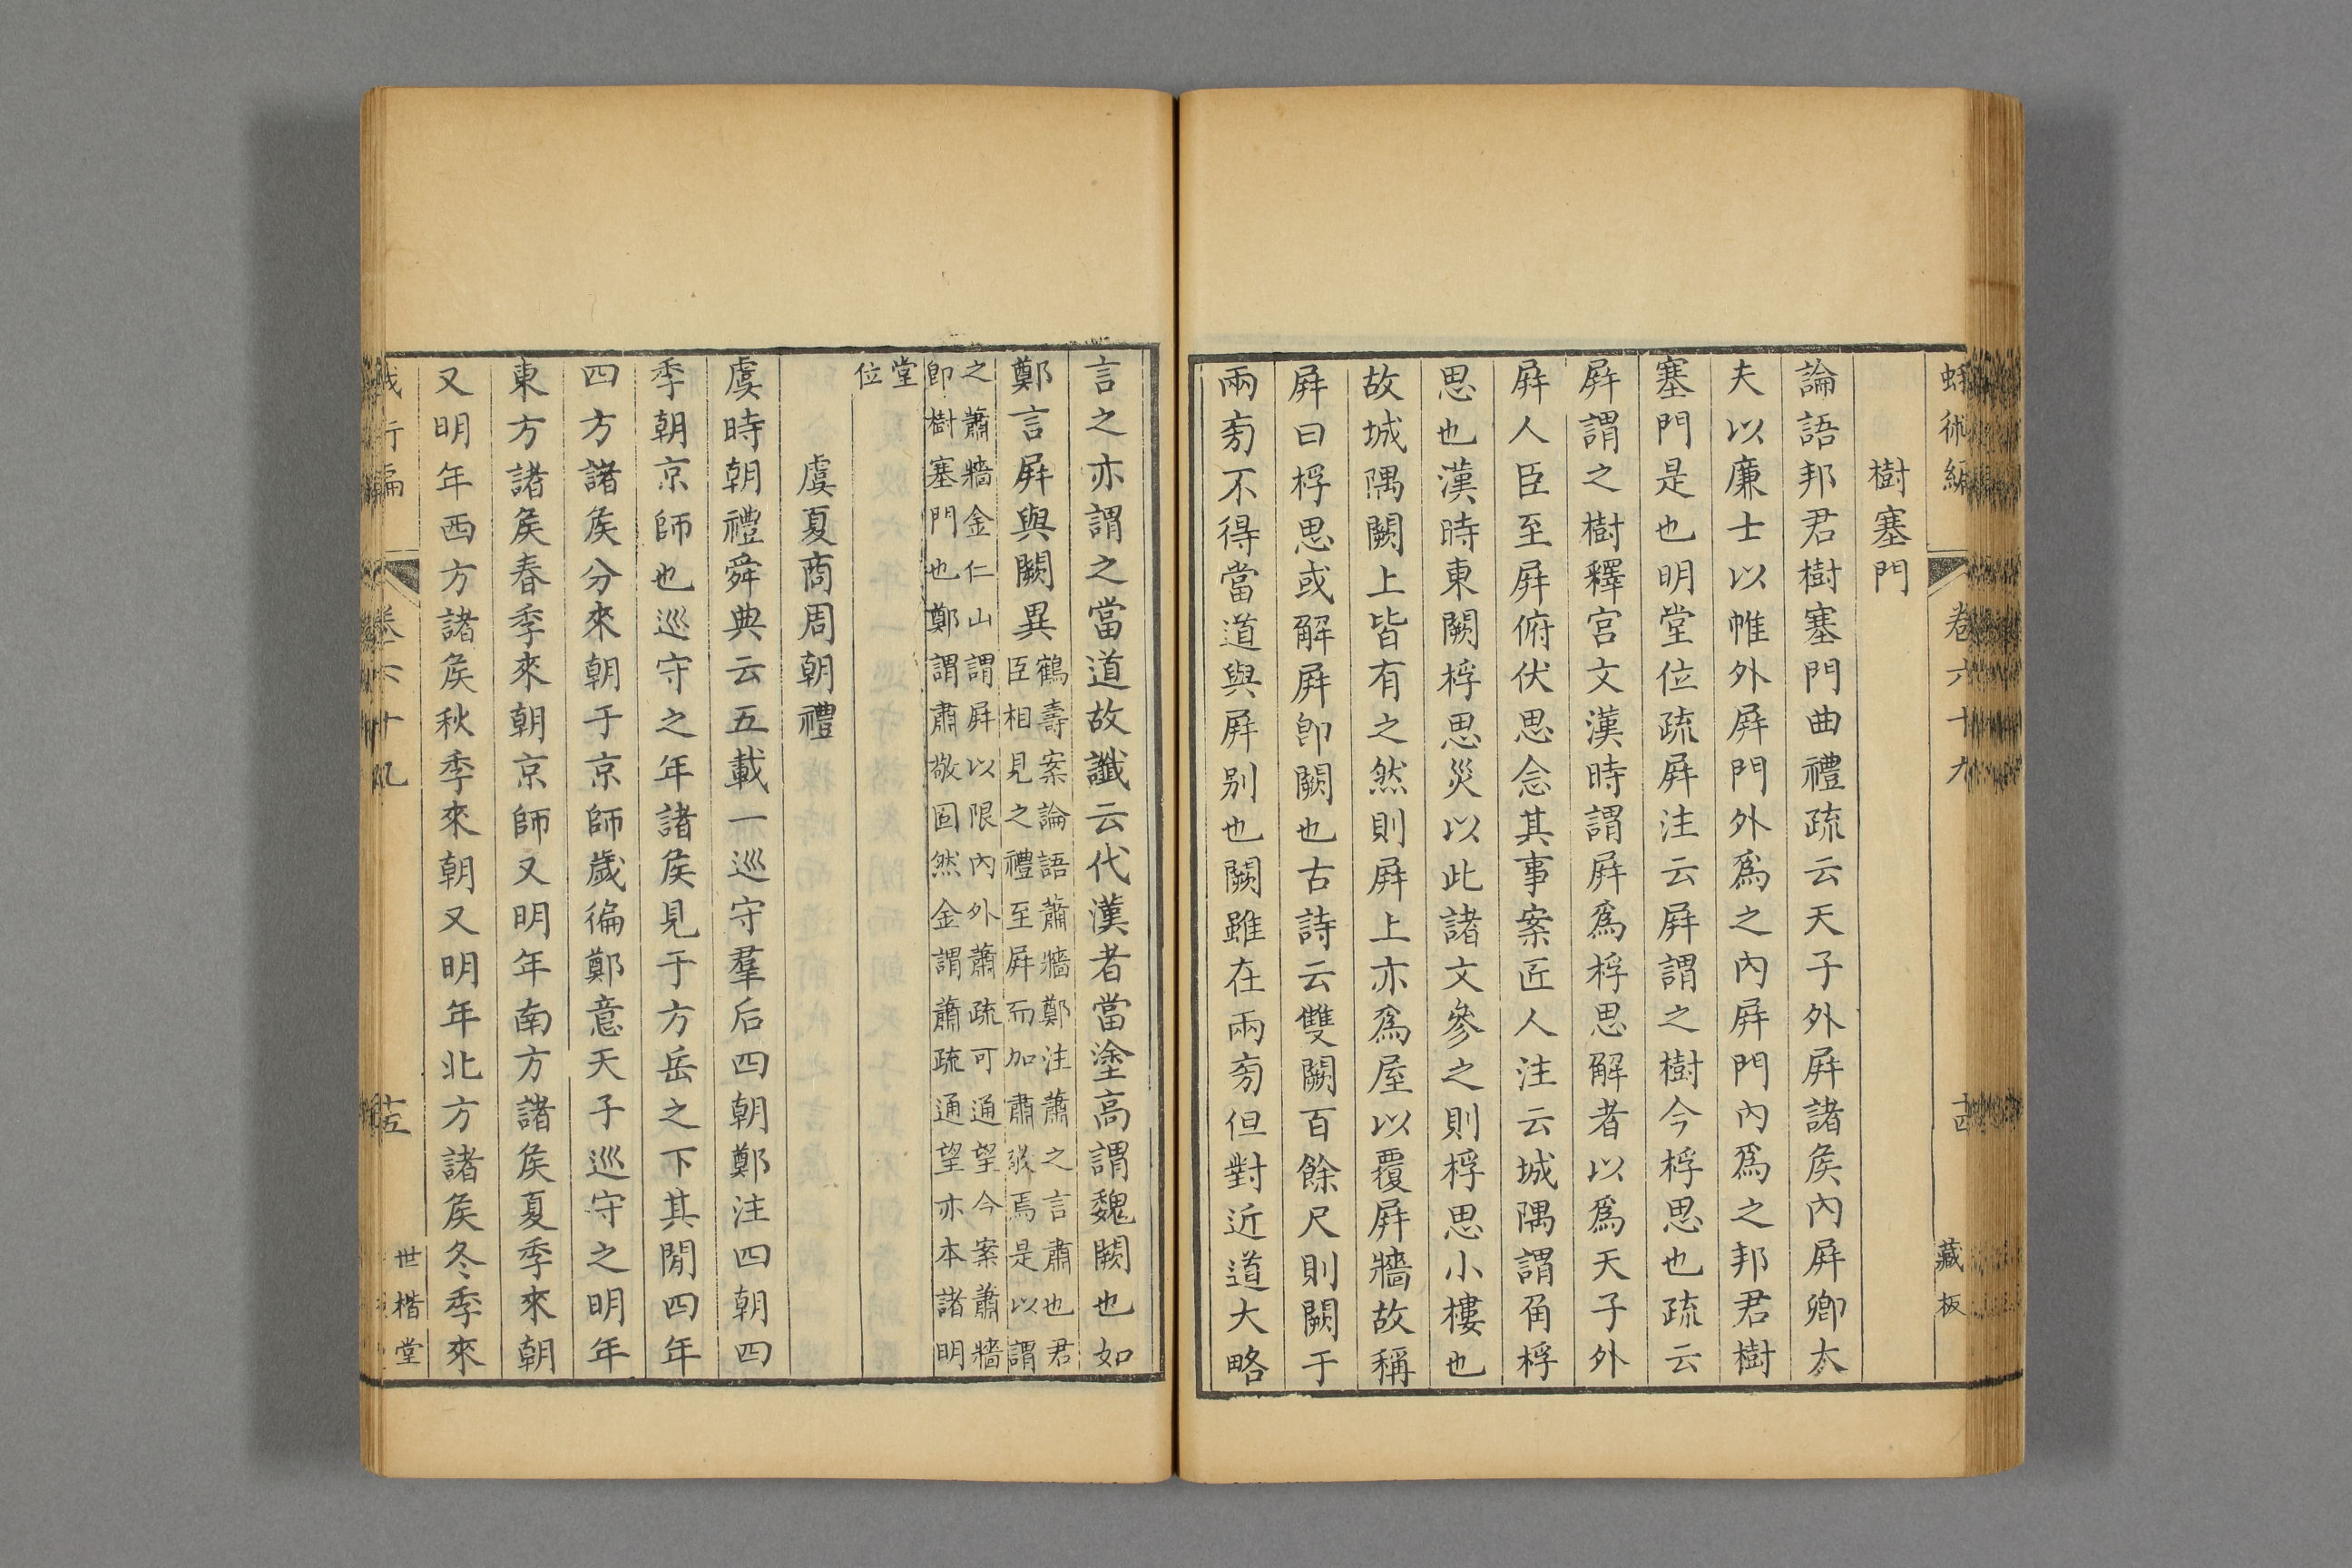 蛾術編
卷六十九
十四
藏板
樹塞門
論語邦君樹塞門曲禮疏云天子外屛諸侯內屛卿大
夫以廉士以帷外屛門外爲之內屛門內爲之邦君樹
塞門是也明堂位疏屛注云屛謂之樹今桴思也疏云
屛謂之樹釋宮文漢時謂屛爲桴思解者以爲天子外
屛人臣至屛俯伏思念其事案匠人注云城隅謂角桴
思也漢時東闕桴思災以此諸文參之則桴思小樓也
故城隅闕上皆有之然則屛上亦爲屋以覆屛牆故稱
屛曰桴思或解屛卽闕也古詩云雙闕百餘尺則闕于
兩㫄不得當道與屛別也闕雖在兩㫄但對近道大略
言之亦謂之當道故讖云代漢者當塗高謂魏闕也如
鄭言屛與闕異鶴壽案論語蕭牆鄭注蕭之言肅也君
臣相見之禮至屛而加肅敬焉是以謂
之蕭牆金仁山謂屛以限內外蕭疏可通望今案蕭牆
卽樹塞門也鄭謂肅敬固然金謂蕭疏通望亦本諸明
堂
位
虞夏商周朝禮
虞時朝禮舜典云五載一巡守羣后四朝鄭注四朝四
季朝京師也巡守之年諸侯見于方岳之下其閒四年
四方諸侯分來朝于京師歲徧鄭意天子巡守之明年
東方諸侯春季來朝京師又明年南方諸侯夏季來朝
又明年西方諸侯秋季來朝又明年北方諸侯冬季來
卷六十九
十五
世楷堂